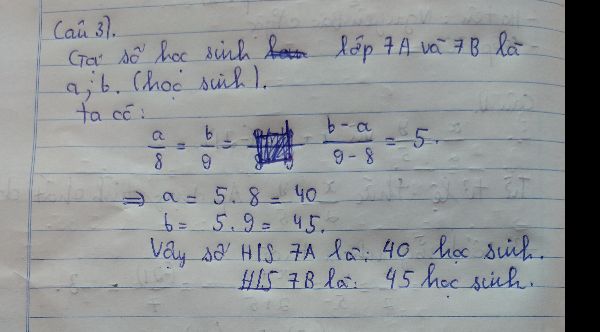 Câu 3).
Gọi số học sinh lớp 7A và 7B là
a; b. (học sinh).
ta có:
a/8 = b/9 = b-a/9-8 = 5.
=> a = 5.8 = 40
b = 5.9 = 45.
Vậy số HS 7A là: 40 học sinh.
HS 7B là: 45 học sinh.